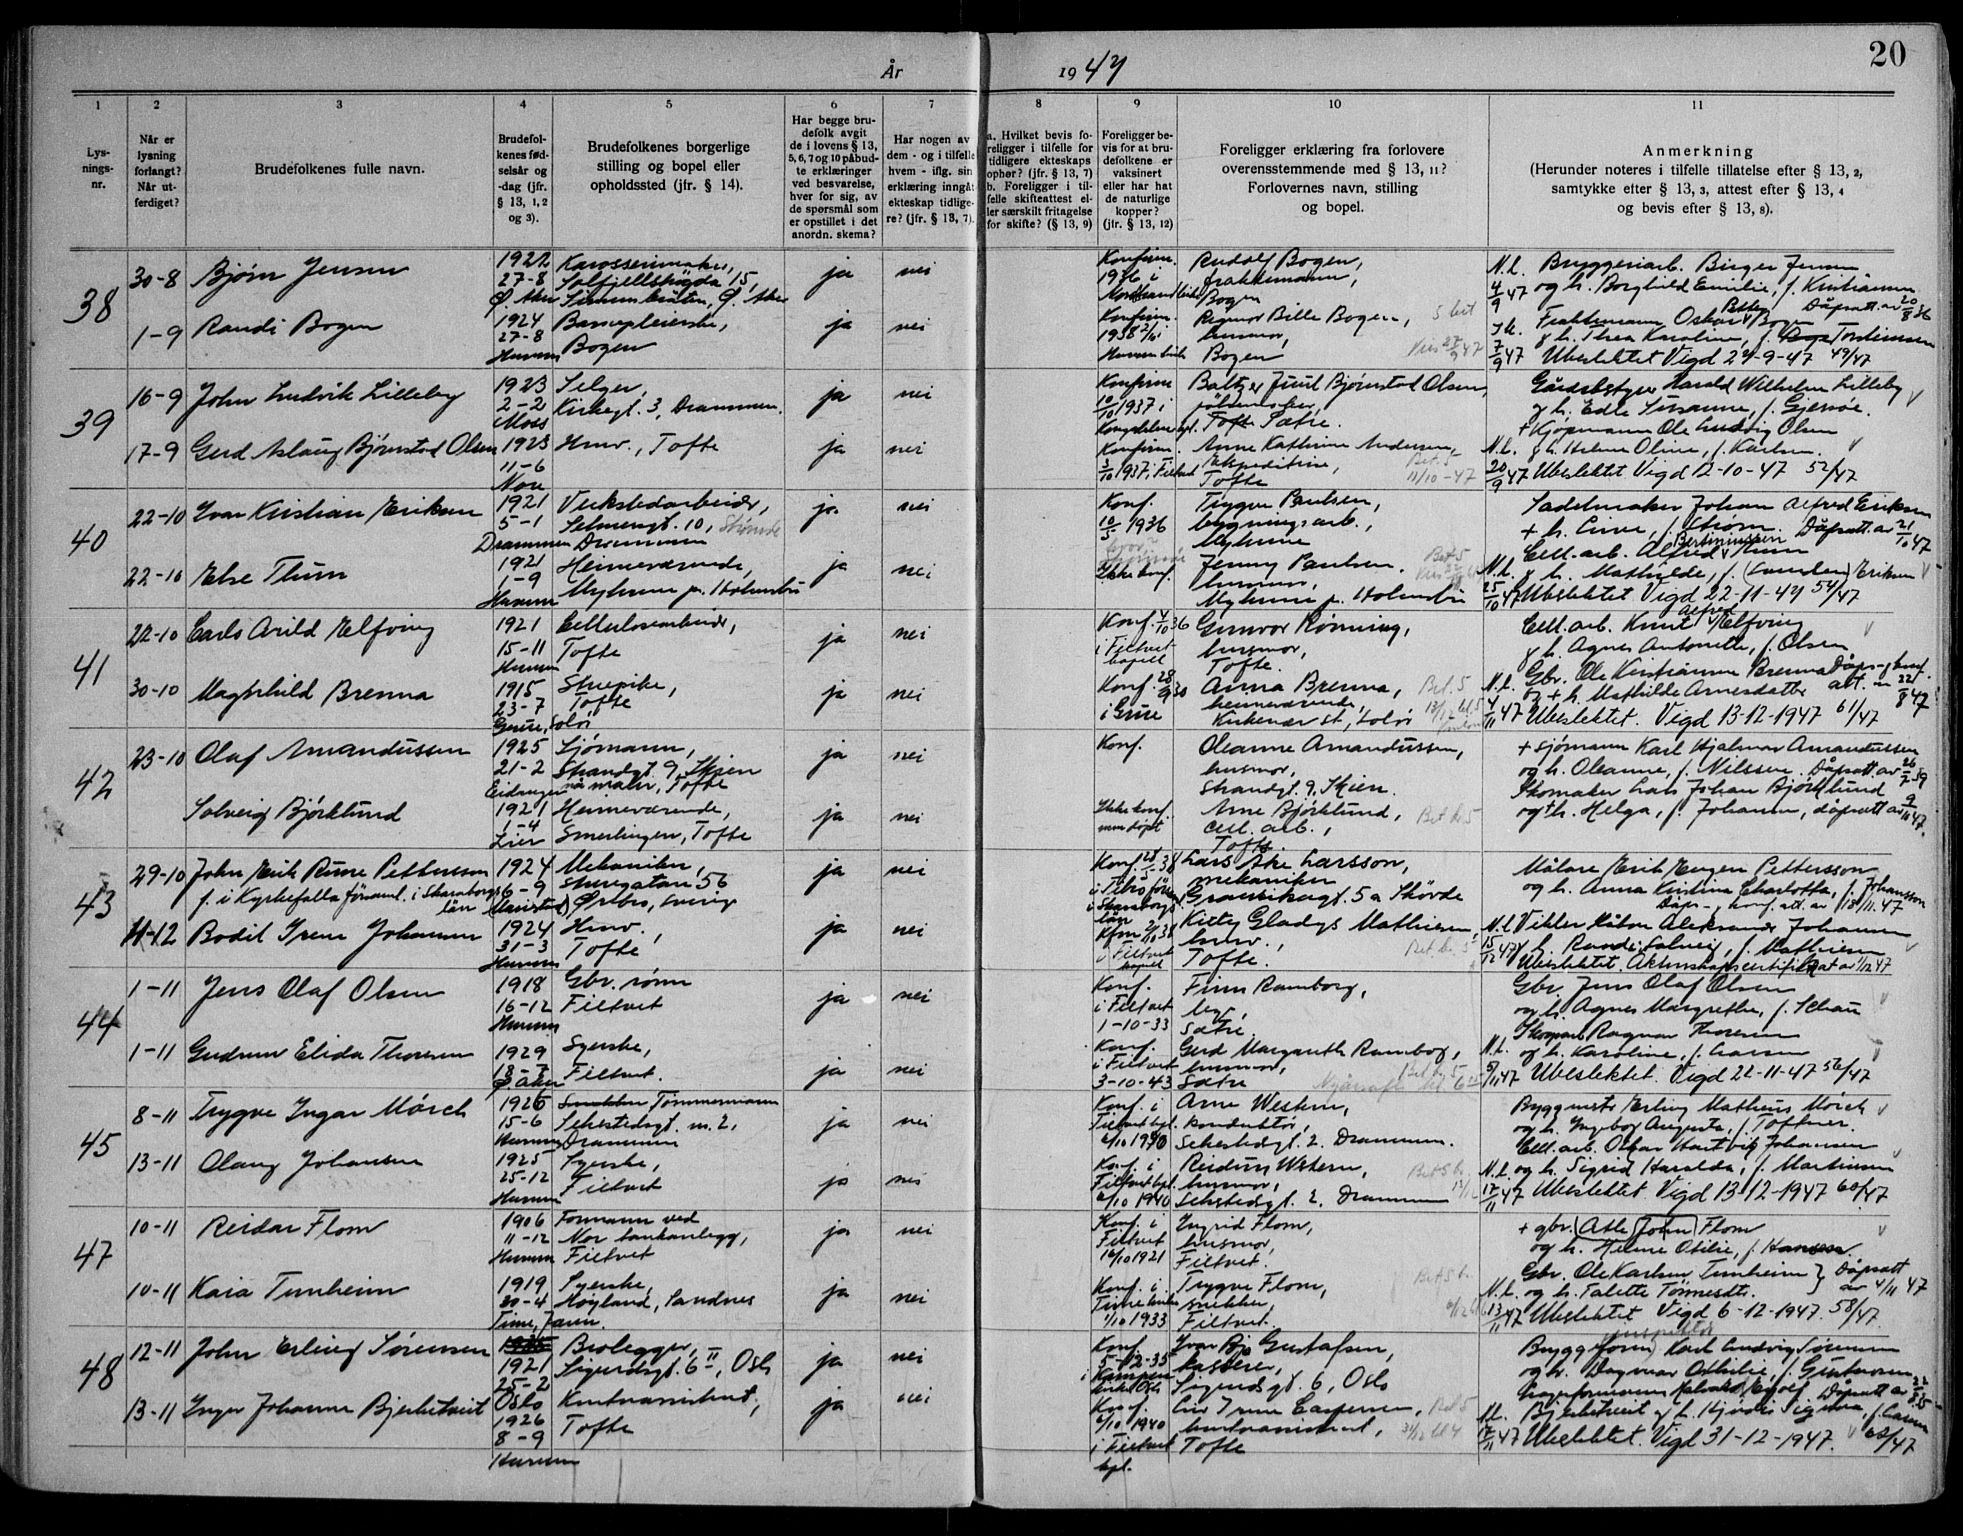 20
År 1947
1 2 3 4 5 6 7 8 9 10 11
Lys-
nings-
nr.
Når er
lysning
forlangt?
Når ut-
ferdiget?
Brudefolkenes fulle navn.
Brudefol-
kenes fød-
selsår og
-dag (jfr.
§ 13, 1, 2
og 3).
Brudefolkenes borgerlige
stilling og bopel eller
opholdssted (jfr. § 14).
Har begge bru-
defolk avgit
de i lovens § 13,
5, 6, 7 og 10 påbud-
te erklæringer
ved besvarelse,
hver for sig, av
de spørsmål som
er opstillet i det
anordn. skema?
Har nogen av
dem - og i tilfelle
hvem - iflg. sin
erklæring inngåt
ekteskap tidlige-
re? (jfr. § 13, 7).
a. Hvilket bevis fo-
religger i tilfelle for
tidligere ekteskaps
ophør? (jfr. § 13, 7)
b. Foreligger i til-
felle skifteattest el-
ler særskilt fritagelse
for skifte? (§ 13, 9)
Foreligger be-
vis for at bru-
defolkene er
vaksinert
eller har hat
de naturlige
kopper?
(jfr. § 13, 12)
Foreligger erklæring fra forlovere
overensstemmende med § 13, 11?
Forlovernes navn, stilling
og bopel.
Anmerkning
(Herunder noteres i tilfelle tillatelse efter § 13, 2,
samtykke efter § 13, 3, attest efter § 13, 4
og bevis efter § 13, 8).
38
30-8 Bjørn Jensen 1922 27-8 Ø. Aker Karosserimaker, Solfjellshøgda 15, Ø. Aker ja nei
Konfirm. 1936 i Rudolf Bogen, fraktemann, Bogen
N.l. 4/9 47 Bryggeriarb. Birger Jensen
og h. Borghild Emilie, f. Kristiansen
1-9 Randi Bogen 1924 27-8 Hurum Barnepleierske, Bogen ja nei
Konfirm. 1938 Ragnar Bille Bogen, husmor, Bogen
Fraktemann Oskar Bogen Dåpsatt. av 20/8 36
g h. Thea Karoline, f. Torstensen
7/9 47 Ubeslektet Vigd 27-9-47 49/47
39
16-9 John Ludvik Lilleby 1923 2-2 Moss Selger, Kirkegt. 3, Drammen. ja nei
Konfirm 10/10 1937 i Baltzer Juul Bjørnstad Olsen, Tofte Sætre.
Gårdsbestyrer Harald Wilhelm Lilleby
g h. Edle Susanne, f. Gjersøe.
17-9 Gerd Aslaug Bjørnstad Olsen 1923 11-6 Hmv., Tofte ja nei
Konfirm. 3/10 1937 i Filtvet Anne Kathrine Andersen, Ekspeditrise, Tofte
Bet. 5 11/10-47
+ Kjøpmann Ole Ludvig Olsen
N.l. g h. Helene Oline, f. Karlsen.
20/9 47 Ubeslektet Vigd 12-10-47 52/47
40
22-10 Ivar Kristian Eriksen 1921 5-1 Drammen Verkstedarbeider, Selmersgt. 10, Drammen ja nei
Konf. 10/5 1936 Trygve Paulsen, bygningsarb., Myhrene
Sadelmaker Johan Alfred Eriksen
+ h. Line, f. Strøm. Dåpsatt. av 21/10 47
22-10 Else Thun 1921 1-9 Hurum Heimeværende, Myhrene pr. Holmsbu ja nei
Ikke konf. Jenny Paulsen. husmor, Myhrene p. Holmsbu
Bet. 5
Cell. arb. Alfred Thun
N.l. g h. Mathilde, f. Eriksen
25/10 47 Ubeslektet Vigd 22-11-47 54/47
41
22-10 Carls Arild Elfving 1921 15-11 Hurum Cellulosearbeider, Tofte ja nei
Konf. 4/10 36 i Filtvet kapell Gunvor Rønning, husmor, Tofte.
Cell. arb. Knut Alfred Elfving
g h. Agnes Antonette, f. Olsen
30-10 Maghild Brenna 1915 23-7 Grue, Solør Stuepike, Tofte ja nei
Konf. 28/9 30 i Grue Anna Brenna, heimeværende, Kirkenær st, Solør
Bet. 5
Gbr. Ole Kristiansen Brenna Dåps- g konf.
N.l. g + h. Mathilde Arnesdatter att. av 22/8 47
4/11 47 Ubeslektet. Vigd 13-12-1947 61/47
42
23-10 Olaf Amandussen 1925 21-2 Eidanger Sjømann, Strandgt. 9, Skien ja nei
Konf. Oleanne Amandussen, husmor, Strandgt. 9, Skien.
+ sjømann Karl Hjalmar Amandussen
og h. Oleanne, f. Nilssen. Dåpsatt. av 26/7 39
Solveig Bjørklund 1921 1-4 Lier Heimeværende, Smerlingen, Tofte ja nei
Ikke konf. men døpt Arne Bjørklund, Cell. arb., Tofte
Skomaker Lars Johan Bjørklund
og + h. Helga, f. Johansen, dåpsatt av 9/11 47.
43
29-10 John Erik Rune Pettersson 1924 6-9 Mekaniker, Storgatan 56 Ørebro, Sverige ja nei
f. i Kyrkefalla församl. i Skaraborgs län (Mariestad)
Lars Åke Larsson, mekaniker 5a Skövde
Målare Erik Eugen Pettersson
og h. Anna Kristina Charlotta, f. Johansson
Dåps- g konf. att. av 18/11.47
11-12 Bodil Irene Johansen 1924 31-3 Hurum Hmv., Tofte ja nei
i Filtvet kapell Kitty Gladys Mathisen, hmv., Tofte.
N.l. Vikler Håkon Aleksander Johansen
15/12 47 g h. Randi Solveig, f. Mathisen
Ubeslektet. Ektenskapscertifikat av 1/12 47
44
1-11 Jens Olaf Olsen 1918 16-12 Hurum Gbr. sønn Filtvet ja nei
Konf. i Filtvet 1-10-33 Finn Ramborg, lege, Sætre.
Gbr. Jens Olaf Olsen
og h. Agnes Margrethe, f. Schau
1-11 Gudrun Elida Thoresen 1929 18-7 Ø. Aker Syerske, Filtvet. ja nei
Konf. i Filtvet 3-10-43 Gerd Margareth Ramborg, husmor, Sætre
Ragnar Thoresen
N.l. og h. Karoline, f. Larsen
5/11 47 Ubeslektet. Vigd 22-11-47 56/47
45
8-11 Trygve Ingar Mørch 1926 15-6 Hurum Snekker Tømmermann Sehestedsgt. nr. 2, Drammen ja nei
Konf. i Filtvet kpl. 6/10 1940 Arne Western, konduktør, Sehestedsgt. 2. Drammen.
Byggmstr Erling Matheus Mørch
og h. Ingeborg Augusta, f. Toftner.
13-11 Olaug Johansen 1925 25-12 Hurum Syerske, Filtvet ja nei
Konf. i Filtvet kpl. 6/10 1940 Reidun Western, husmor, Sehestedsgt. 2, Drammen
Cell. arb. Oskar Hartvik Johansen
N.l. og h. Sigrid Haralda, f. Martinsen
17/11 47 Ubeslektet Vigd 13-12-1947 60/47.
47
10-11 Reidar Flom 1906 11-12 Hurum Formann ved Nor tankanlegg, Filtvet ja nei
Konf. i Filtvet 16/10 1921 Ingrid Flom, husmor, Filtvet.
+ gbr. (Atle John) Flom
og h. Helene Otilie, f. Hansen.
10-11 Kaia Tunheim 1919 30-4 Time, Jæren Syerske, Høyland, Sandnes ja nei
Konf. i Time kirke 1/10 1933 Trygve Flom, snekker, Filtvet.
Gbr. Ole Karlsen Tunheim } Dåpsatt
N.l. og h. Talette Tønnesdtr. av 4/11 47
13/11 47 Ubeslektet Vigd 6-12-1947. 58/47.
48
12-11 John Erling Sørensen 1921 25-2 Oslo Brolegger, Sigurdsgt. 6 II, Oslo ja nei
Konf. 5-12-35 i Kampen kirke Oslo Ivar Bj. Gustafsen, kasserer, Sigurdsgt. 6, Oslo
Karl Ludvig Sørensen
og h. Dagmar Othilie, f. Gustavsen
13-11 Inger Johanne Bjerketveit 1926 8-9 Hurum Kontorassistent, Tofte ja nei
Konf. 6/10 1940 i Filtvet kpl. Liv Irene Caspersen, kontorassistent, Tofte
Lagerformann
N.l. Bjerketveit g h. Hjørdis Signora, f. Larsen
17/11 47 Ubeslektet. Vigd 31-12-1947. 62/47